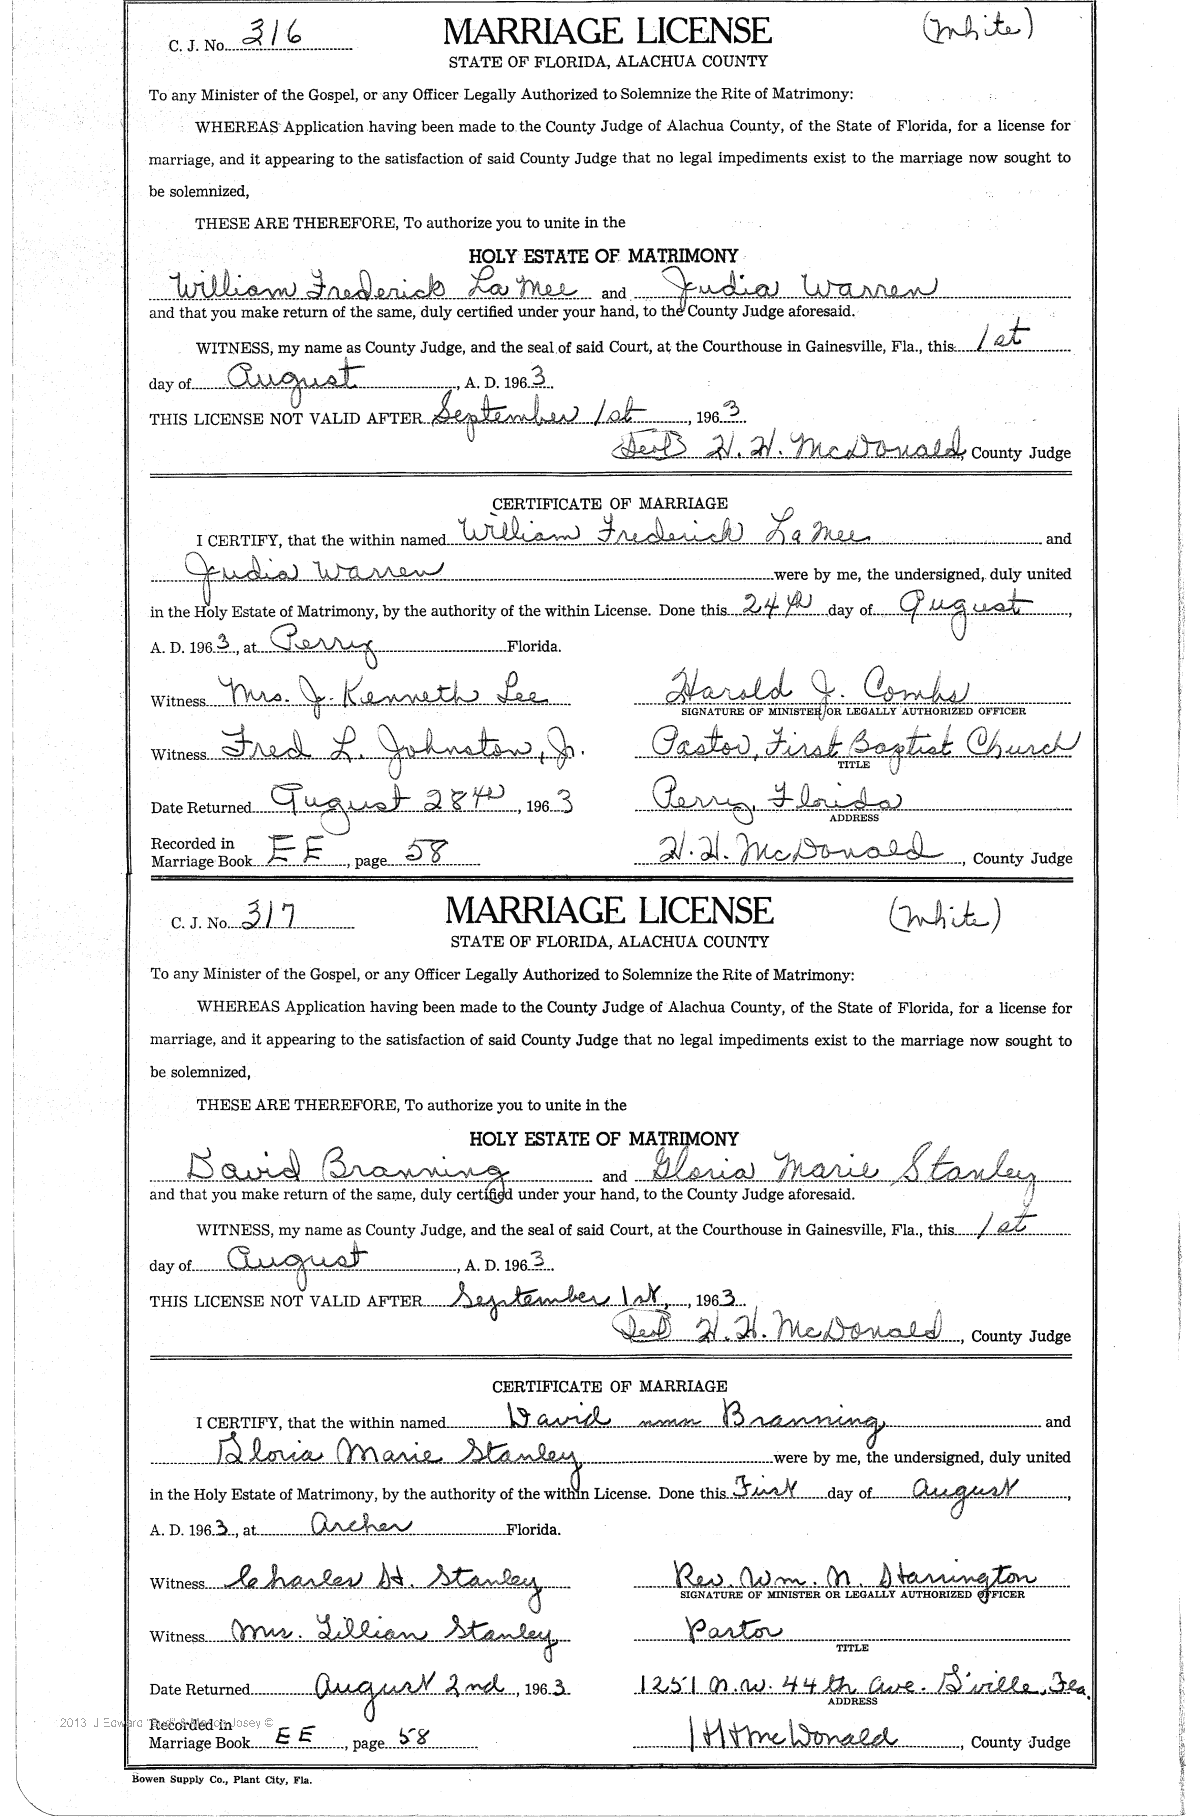 C. J. No. 316 MARRIAGE LICENSE (White)
STATE OF FLORIDA, ALACHUA COUNTY
To any Minister of the Gospel, or any Officer Legally Authorized to Solemnize the Rite of Matrimony:
WHEREAS Application having been made to the County Judge of Alachua County, of the State of Florida, for a license for
marriage, and it appearing to the satisfaction of said County Judge that no legal impediments exist to the marriage now sought to
be solemnized,
THESE ARE THEREFORE, To authorize you to unite in the
HOLY ESTATE OF MATRIMONY
William Frederick La Mee and Judia Warren
and that you make return of the same, duly certified under your hand, to the County Judge aforesaid.
WITNESS, my name as County Judge, and the seal of said Court, at the Courthouse in Gainesville, Fla., this 1st
day of August, A. D. 1963
THIS LICENSE NOT VALID AFTER September 1st, 1963
Seal H. H. McDonald, County Judge
CERTIFICATE OF MARRIAGE
I CERTIFY, that the within named William Frederick La Mee and
Judia Warren were by me, the undersigned, duly united
in the Holy Estate of Matrimony, by the authority of the within License. Done this 24th day of August,
A. D. 1963, at Perry Florida.
Witness Mrs. J. Kenneth Lee Harold J. Combs
SIGNATURE OF MINISTER OR LEGALLY AUTHORIZED OFFICER
Witness Fred L. Johnston, Jr. Pastor, First Baptist Church
TITLE
Date Returned August 28th, 1963 Perry, Florida
ADDRESS
Recorded in
Marriage Book EE, page 58 H. H. McDonald, County Judge
C. J. No. 317 MARRIAGE LICENSE (White)
STATE OF FLORIDA, ALACHUA COUNTY
To any Minister of the Gospel, or any Officer Legally Authorized to Solemnize the Rite of Matrimony:
WHEREAS Application having been made to the County Judge of Alachua County, of the State of Florida, for a license for
marriage, and it appearing to the satisfaction of said County Judge that no legal impediments exist to the marriage now sought to
be solemnized,
THESE ARE THEREFORE, To authorize you to unite in the
HOLY ESTATE OF MATRIMONY
David Branning and Gloria Marie Stanley
and that you make return of the same, duly certified under your hand, to the County Judge aforesaid.
WITNESS, my name as County Judge, and the seal of said Court, at the Courthouse in Gainesville, Fla., this 1st
day of August, A. D. 1963
THIS LICENSE NOT VALID AFTER September 1st, 1963
Seal H. H. McDonald, County Judge
CERTIFICATE OF MARRIAGE
I CERTIFY, that the within named David nmn Branning and
Gloria Marie Stanley were by me, the undersigned, duly united
in the Holy Estate of Matrimony, by the authority of the within License. Done this First day of August,
A. D. 1963, at Archer Florida.
Witness Charles H. Stanley Rev. Wm. N. Harrington
SIGNATURE OF MINISTER OR LEGALLY AUTHORIZED OFFICER
Witness Mrs. Lillian Stanley Pastor
TITLE
Date Returned August 2nd, 1963 1251 N.W. 44th Ave. G'ville, Fla.
ADDRESS
2013 J Edward Josey ©
Recorded in
Marriage Book EE, page 58 H H McDonald, County Judge
Bowen Supply Co., Plant City, Fla.